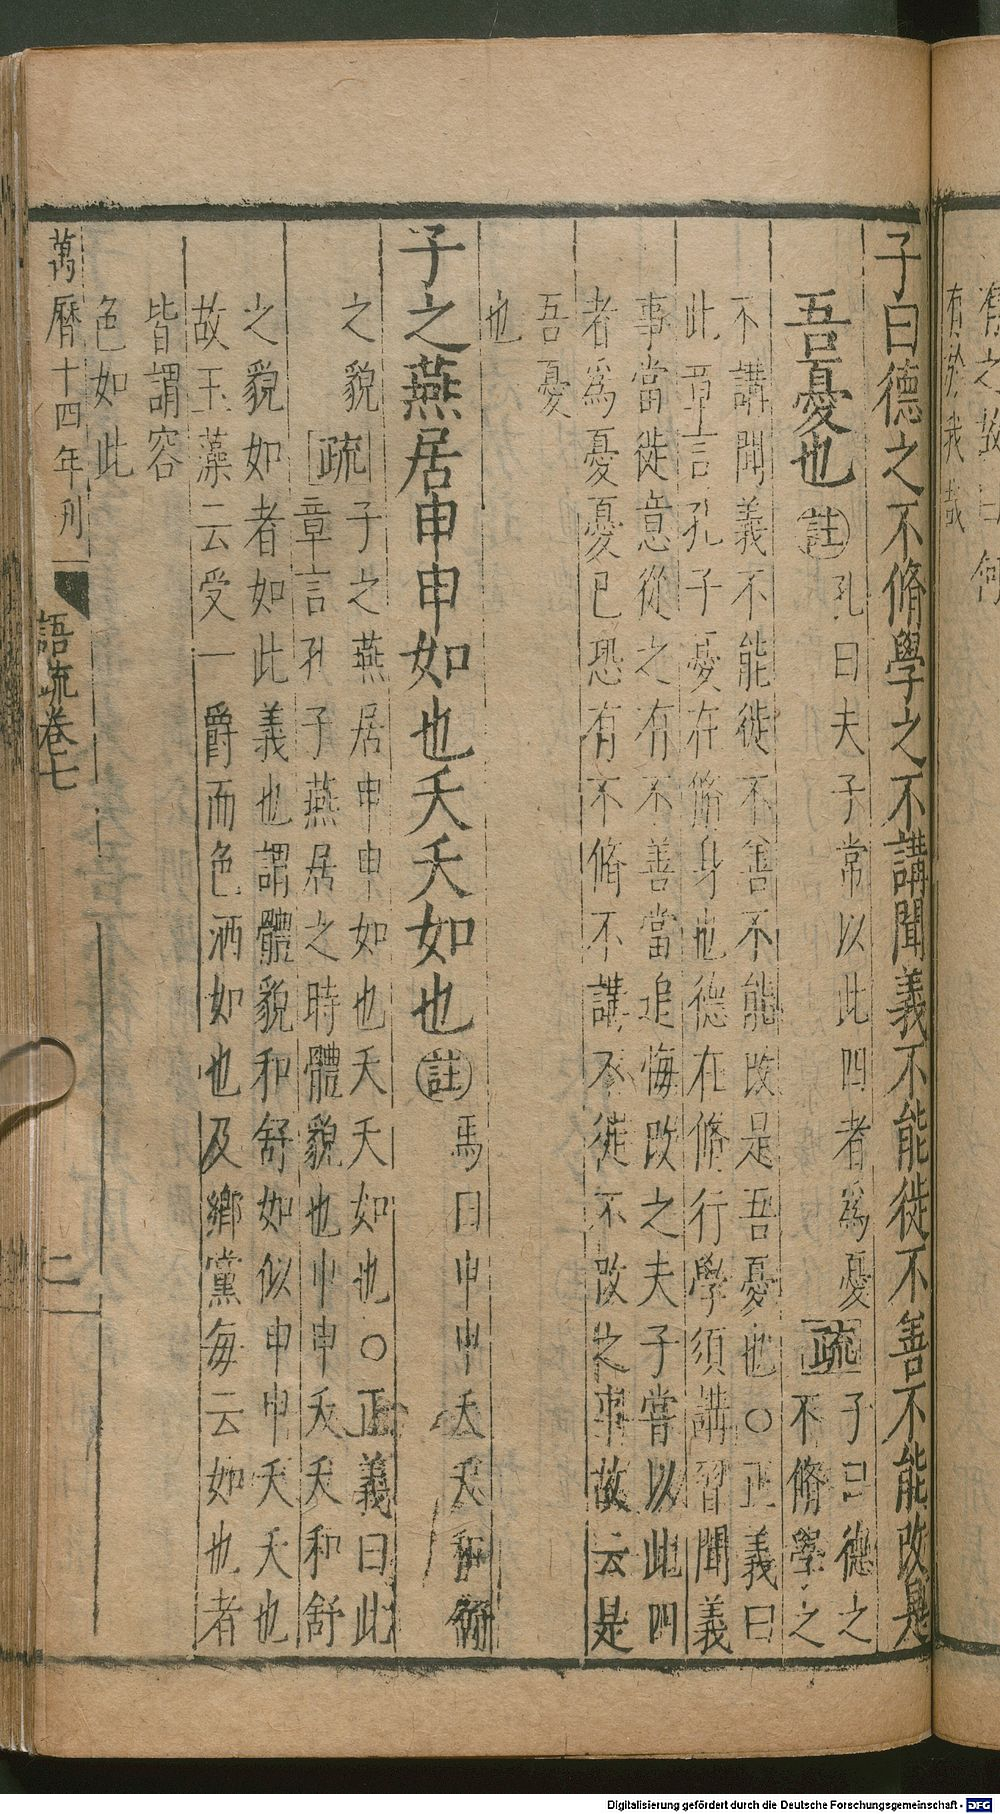 有之故曰何
有於我哉
子曰德之不脩學之不講聞義不能徙不善不能改是
吾憂也
註
孔曰夫子常以此四者爲憂
疏
子曰德之
不脩學之
不講聞義不能徙不善不能改是吾憂也○正義曰
此章言孔子憂在脩身也德在脩行學須講習聞義
事當徙意從之有不善當追悔改之夫子嘗以此四
者爲憂憂已恐有不脩不講不徙不改之事故云是
吾憂
也
子之燕居申申如也夭夭如也
註
馬曰申申夭夭和舒
之貌
疏
子之燕居申申如也夭夭如也○正義曰此
章言孔子燕居之時體貌也申申夭夭和舒
之貌如者如此義也謂體貌和舒如似申申夭夭也
故玉藻云受一爵而色洒如也及鄉黨每云如也者
皆謂容
色如此
萬曆十四年刊
語疏卷七
二
Digitalisierung gefördert durch die Deutsche Forschungsgemeinschaft - DFG